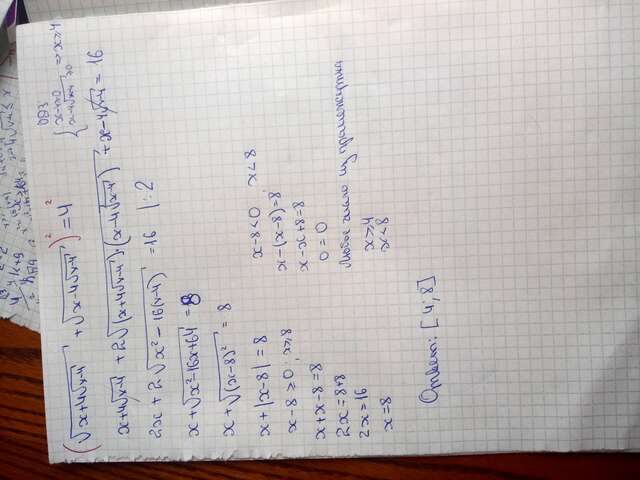 ОДЗ
{ x-4≥0
x-4√x-4 ≥0 => x≥4
(√x+4√x-4 + √x-4√x-4)² = 4²
x+4√x-4 + 2√(x+4√x-4)·(x-4√x-4) + x-4√x-4 = 16
2x + 2√x²-16(x-4) = 16 | :2
x + √x²-16x+64 = 8
x + √(x-8)² = 8
x + |x-8| = 8
x-8≥0; x≥8
x+x-8=8
2x=8+8
2x=16
x=8
x-8<0; x<8
x-(x-8)=8
x-x+8=8
0=0
Любое число из промежутка
x≥4
x<8
Ответ: [4; 8]